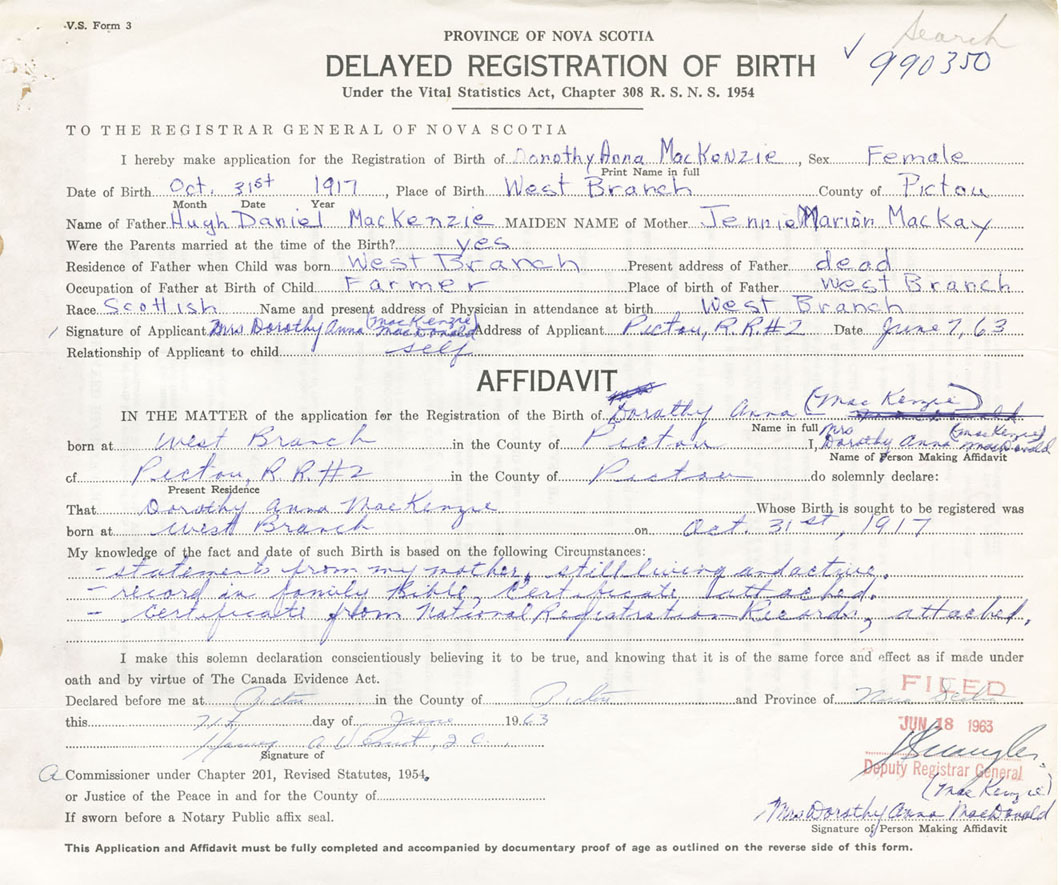 V.S. Form 3
Search
PROVINCE OF NOVA SCOTIA
✓ 990350
DELAYED REGISTRATION OF BIRTH
Under the Vital Statistics Act, Chapter 308 R. S. N. S. 1954
TO THE REGISTRAR GENERAL OF NOVA SCOTIA
I hereby make application for the Registration of Birth of Dorothy Anna MacKenzie, Sex Female
Print Name in full
Date of Birth Oct. 31st 1917, Place of Birth West Branch County of Pictou
Month Date Year
Name of Father Hugh Daniel MacKenzie MAIDEN NAME of Mother Jennie Marion MacKay
Were the Parents married at the time of the Birth? yes
Residence of Father when Child was born West Branch Present address of Father dead
Occupation of Father at Birth of Child Farmer Place of birth of Father West Branch
Race Scottish Name and present address of Physician in attendance at birth West Branch
Signature of Applicant Mrs Dorothy Anna (MacKenzie) MacDonald Address of Applicant Pictou, R.R.#2 Date June 7, 63
Relationship of Applicant to child self
AFFIDAVIT
IN THE MATTER of the application for the Registration of Birth of Dorothy Anna (MacKenzie)
Name in full
born at West Branch in the County of Pictou I, Mrs Dorothy Anna (MacKenzie) MacDonald
Name of Person Making Affidavit
of Pictou, R.R.#2 in the County of Pictou do solemnly declare:
Present Residence
That Dorothy Anna MacKenzie Whose Birth is sought to be registered was
born at West Branch on Oct. 31st, 1917
My knowledge of the fact and date of such Birth is based on the following Circumstances:
- statements from my mother, still living and active.
- record in family Bible, Certificate attached.
- Certificate from National Registration Records, attached.
I make this solemn declaration conscientiously believing it to be true, and knowing that it is of the same force and effect as if made under
oath and by virtue of The Canada Evidence Act.
Declared before me at Pictou in the County of Pictou and Province of Nova Scotia
FILED
this 7th day of June 1963
JUN 18 1963
Signature of
Deputy Registrar General
A Commissioner under Chapter 201, Revised Statutes, 1954,
or Justice of the Peace in and for the County of
(MacKenzie)
Mrs Dorothy Anna MacDonald
If sworn before a Notary Public affix seal.
Signature of Person Making Affidavit
This Application and Affidavit must be fully completed and accompanied by documentary proof of age as outlined on the reverse side of this form.